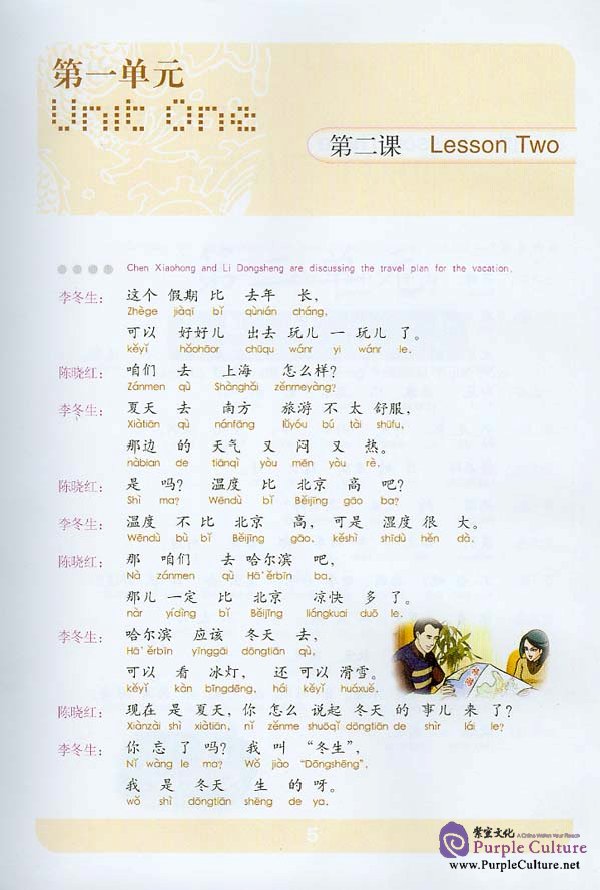 第一单元
Unit One
第二课 Lesson Two
Chen Xiaohong and Li Dongsheng are discussing the travel plan for the vacation.
李冬生： 这个 假期 比 去年 长，
Zhège jiàqī bǐ qùnián cháng,
可以 好好儿 出去 玩儿 一 玩儿 了。
kěyǐ hǎohāor chūqu wánr yi wánr le.
陈晓红： 咱们 去 上海 怎么样？
Zánmen qù Shànghǎi zěnmeyàng?
李冬生： 夏天 去 南方 旅游 不 太 舒服，
Xiàtiān qù nánfāng lǚyóu bú tài shūfu,
那边 的 天气 又 闷 又 热。
nàbian de tiānqì yòu mēn yòu rè.
陈晓红： 是 吗？ 温度 比 北京 高 吧？
Shì ma? Wēndù bǐ Běijīng gāo ba?
李冬生： 温度 不 比 北京 高，可是 湿度 很 大。
Wēndù bù bǐ Běijīng gāo, kěshì shīdù hěn dà.
陈晓红： 那 咱们 去 哈尔滨 吧，
Nà zánmen qù Hā'ěrbīn ba,
那儿 一定 比 北京 凉快 多 了。
nàr yídìng bǐ Běijīng liángkuai duō le.
李冬生： 哈尔滨 应该 冬天 去，
Hā'ěrbīn yīnggāi dōngtiān qù,
可以 看 冰灯， 还 可以 滑雪。
kěyǐ kàn bīngdēng, hái kěyǐ huáxuě.
陈晓红： 现在 是 夏天，你 怎么 说起 冬天 的 事儿 来 了？
Xiànzài shì xiàtiān, nǐ zěnme shuōqǐ dōngtiān de shìr lái le?
李冬生： 你 忘 了 吗？ 我 叫 “冬生”，
Nǐ wàng le ma? Wǒ jiào “Dōngshēng”,
我 是 冬天 生 的 呀。
wǒ shì dōngtiān shēng de ya.
5
紫室文化 A China Within Your Reach
Purple Culture
www.PurpleCulture.net